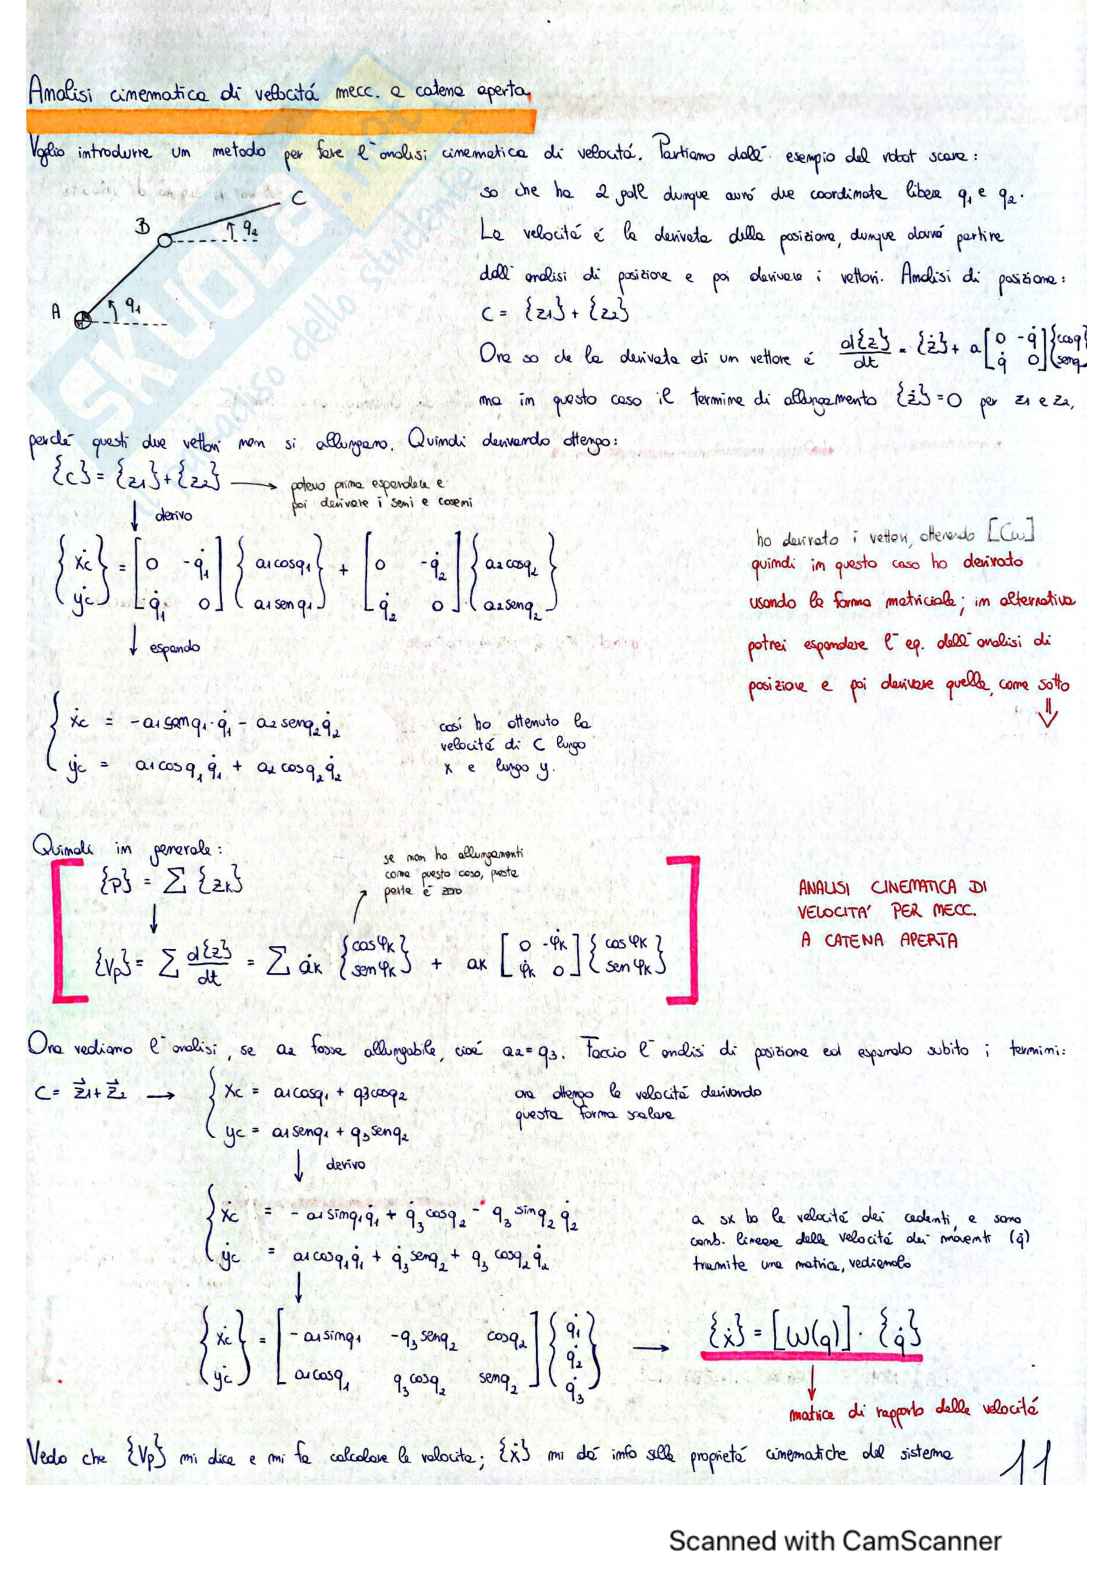 Analisi cinematica di velocitá mecc. a catena aperta
Voglio introdurre un metodo per fare l'analisi cinematica di velocitá. Partiamo dall' esempio del robot scara:
A
B
C
q₁
q₂
so che ha 2 gdl dunque avró due coordinate libere q₁ e q₂.
La velocitá é la derivata della posizione, dunque dovró partire
dall' analisi di posizione e poi derivare i vettori. Analisi di posizione:
C = {z1} + {z2}
Ora so che la derivata di un vettore é d{z}/dt = {ż} + a [0 -q̇; q̇ 0] {cosq; senq
ma in questo caso il termine di allungamento {ż}=0 per z1 e z2,
perché questi due vettori non si allungano. Quindi derivando ottengo:
{C} = {z1} + {z2} → potevo prima espandere e
poi derivare i seni e coseni
↓ derivo
{ẋc; ẏc} = [0 -q̇₁; q̇₁ 0] {a1cosq₁; a1senq₁} + [0 -q̇₂; q̇₂ 0] {a2cosq₂; a2senq₂}
↓ espando
ho derivato i vettori, ottenendo [Cω]
quindi in questo caso ho derivato
usando la forma matriciale; in alternativa
potrei espandere l' eq. dell' analisi di
posizione e poi derivare quella, come sotto
⇓
ẋc = -a1senq₁·q̇₁ - a2senq₂q̇₂
ẏc = a1cosq₁q̇₁ + a2cosq₂q̇₂
cosí ho ottenuto la
velocitá di C lungo
x e lungo y.
Quindi in generale:
{P} = Σ {zk}
↓
se non ho allungamenti
come questo caso, questa
parte é zero
{Vp} = Σ d{z}/dt = Σ ȧk {cosφk; senφk} + ak [0 -φ̇k; φ̇k 0] {cosφk; senφk}
ANALISI CINEMATICA DI
VELOCITA' PER MECC.
A CATENA APERTA
Ora vediamo l' analisi, se a2 fosse allungabile, cioé a2=q₃. Faccio l' analisi di posizione ed espando subito i termini:
C = z⃗1 + z⃗2 →
xc = a1cosq₁ + q3cosq2
yc = a1senq₁ + q₃senq₂
ora ottengo le velocitá derivando
questa forma scalare
↓ derivo
ẋc = - a1sinq₁q̇₁ + q̇₃cosq₂ - q₃sinq₂q̇₂
ẏc = a1cosq₁q̇₁ + q̇₃senq₂ + q₃cosq₂q̇₂
↓
a sx ho le velocitá dei cedenti, e sono
comb. lineare delle velocitá dei moventi (q̇)
tramite una matrice, vediamolo
{ẋc; ẏc} = [-a1sinq₁ -q₃senq₂ cosq₂; a1cosq₁ q₃cosq₂ senq₂] {q̇₁; q̇₂; q̇₃} → {ẋ} = [W(q)] · {q̇}
↓
matrice di rapporto delle velocitá
Vedo che {Vp} mi dice e mi fa calcolare le velocita; {ẋ} mi dá info sulle proprietá cinematiche del sistema
11
SKUOLA.net
dello studente
Scanned with CamScanner